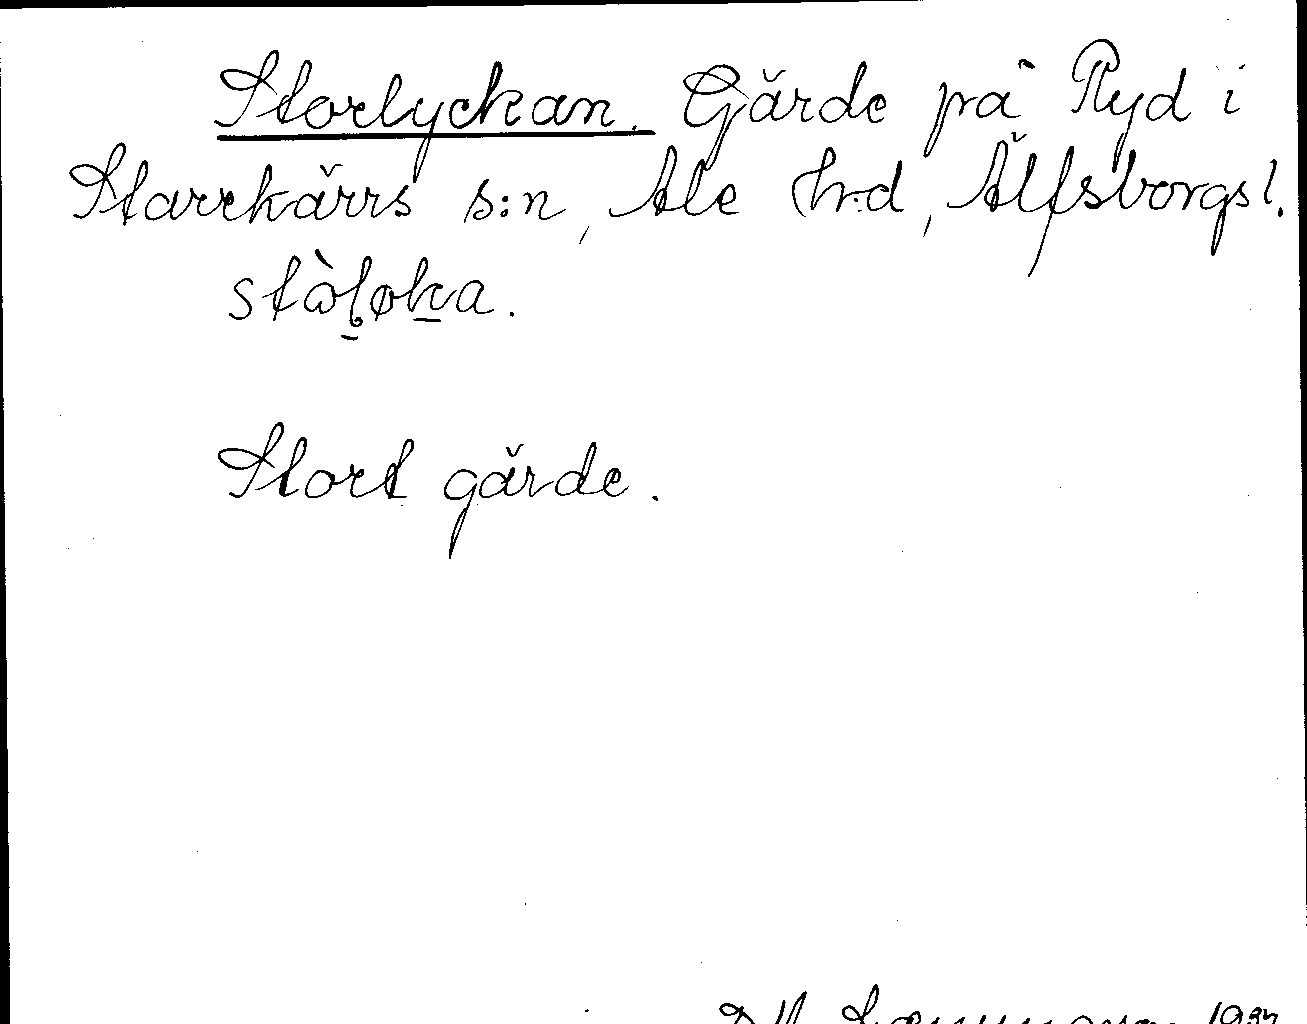 Storlyckan. Gärde på Ryd i
Starrkärrs s:n, Ale h:d, Älfsborgs l.
stò̀løka.
Stort gärde.